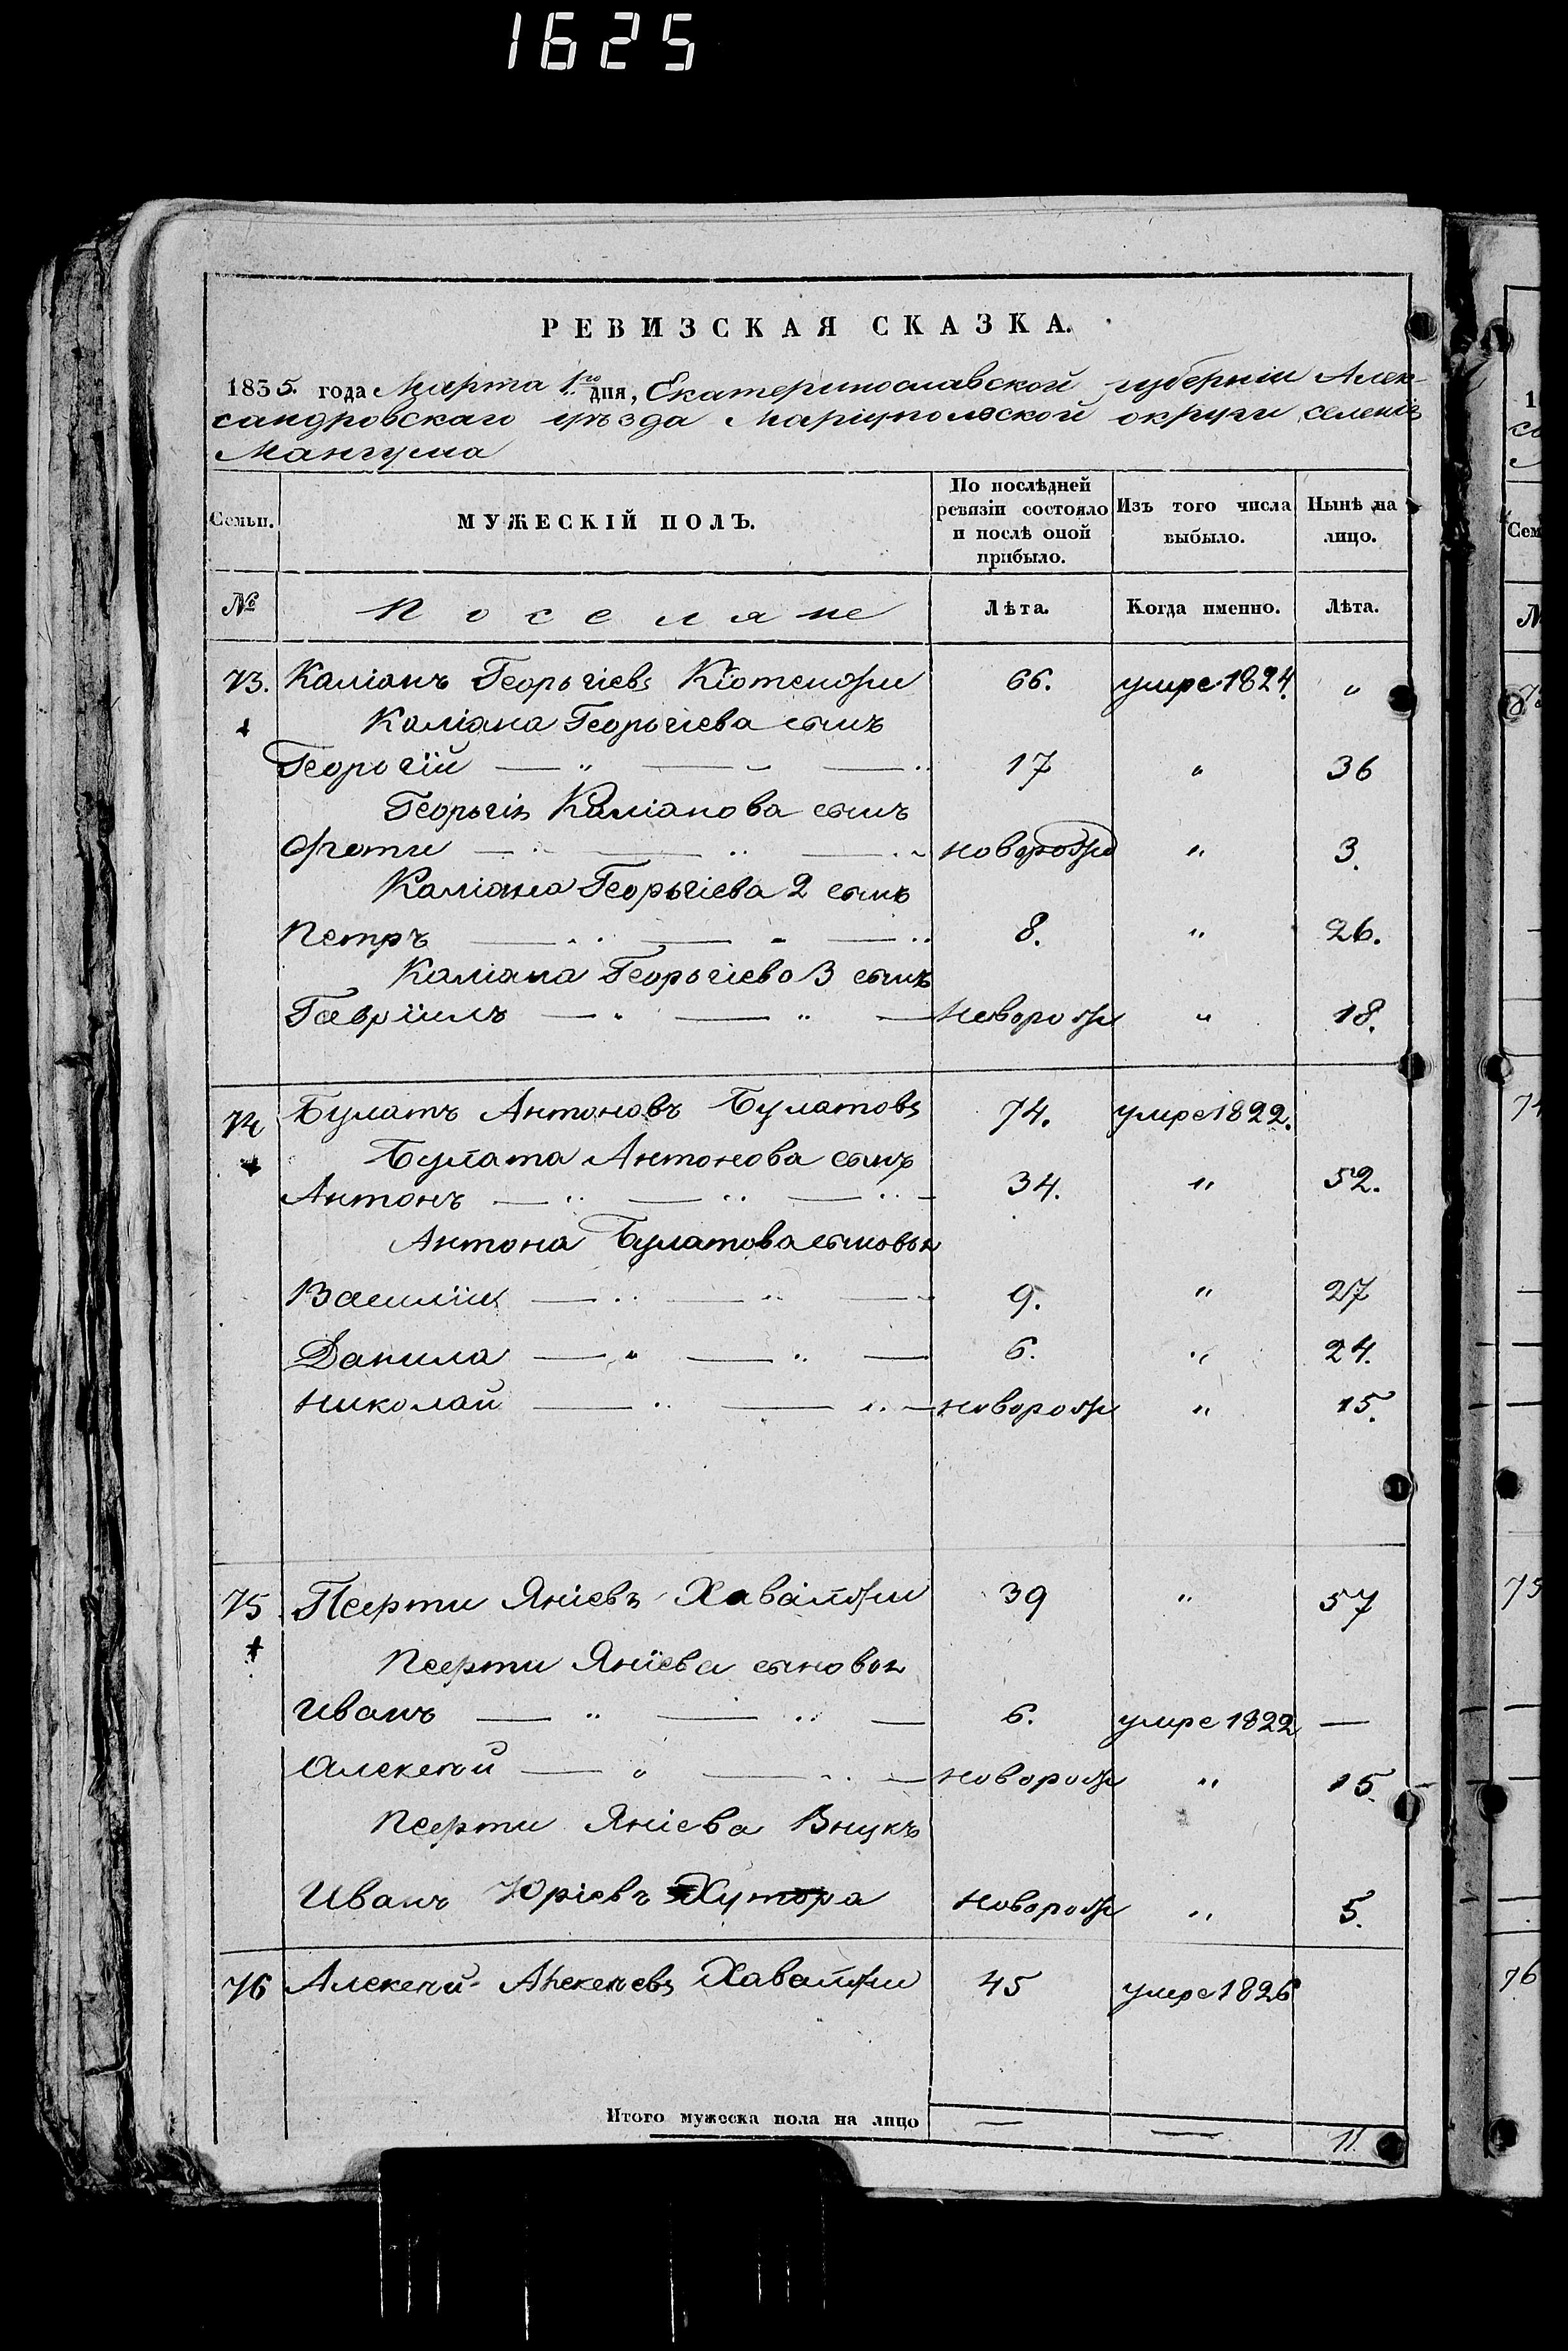 1625
РЕВИЗСКАЯ СКАЗКА.
1835. года Марта 1го дня, Екатеринославской губерніи Алек-
сандровскаго уѣзда Маріупольской округи селенія
Мангуша
Семьи. МУЖЕСКІЙ ПОЛЪ. По послѣдней ревизіи состояло и послѣ оной прибыло. Изъ того числа выбыло. Нынѣ на лицо.
№ Поселяне Лѣта. Когда именно. Лѣта.
73. Каліанъ Георьгіевъ 66. умре 1824. "
Каліана Георьгіева сынъ
Георьгій — " — " — " 17 " 36
Георьгія Каліанова сынъ
Фоти — " — " — " новорож " 3.
Каліана Георьгіева 2 сынъ
Петръ — " — " — " 8. " 26.
Каліана Георьгіева 3 сынъ
Гавріилъ — " — " — новорож " 18.
74 Булатъ Антоновъ Булатовъ 74. умре 1822.
Булата Антонова сынъ
Антонъ — " — " — " — 34. " 52.
Антона Булатова сыновья
Василій — " — " — 9. " 27
Данила — " — " — 6. " 24.
Николай — " — " — новорож " 15.
75 Псерти Яніевъ Хаваджи 39 " 57
Псерти Яніева сыновья
Иванъ — " — " — 6. умре 1822 —
Алексей — " — " — новорож " 15
Псерти Яніева Внукъ
Иванъ Юріевъ Хутора новорож " 5.
76 Алексей Алексеевъ Хаваджи 45 умре 1826
Итого мужеска пола на лицо — — 11